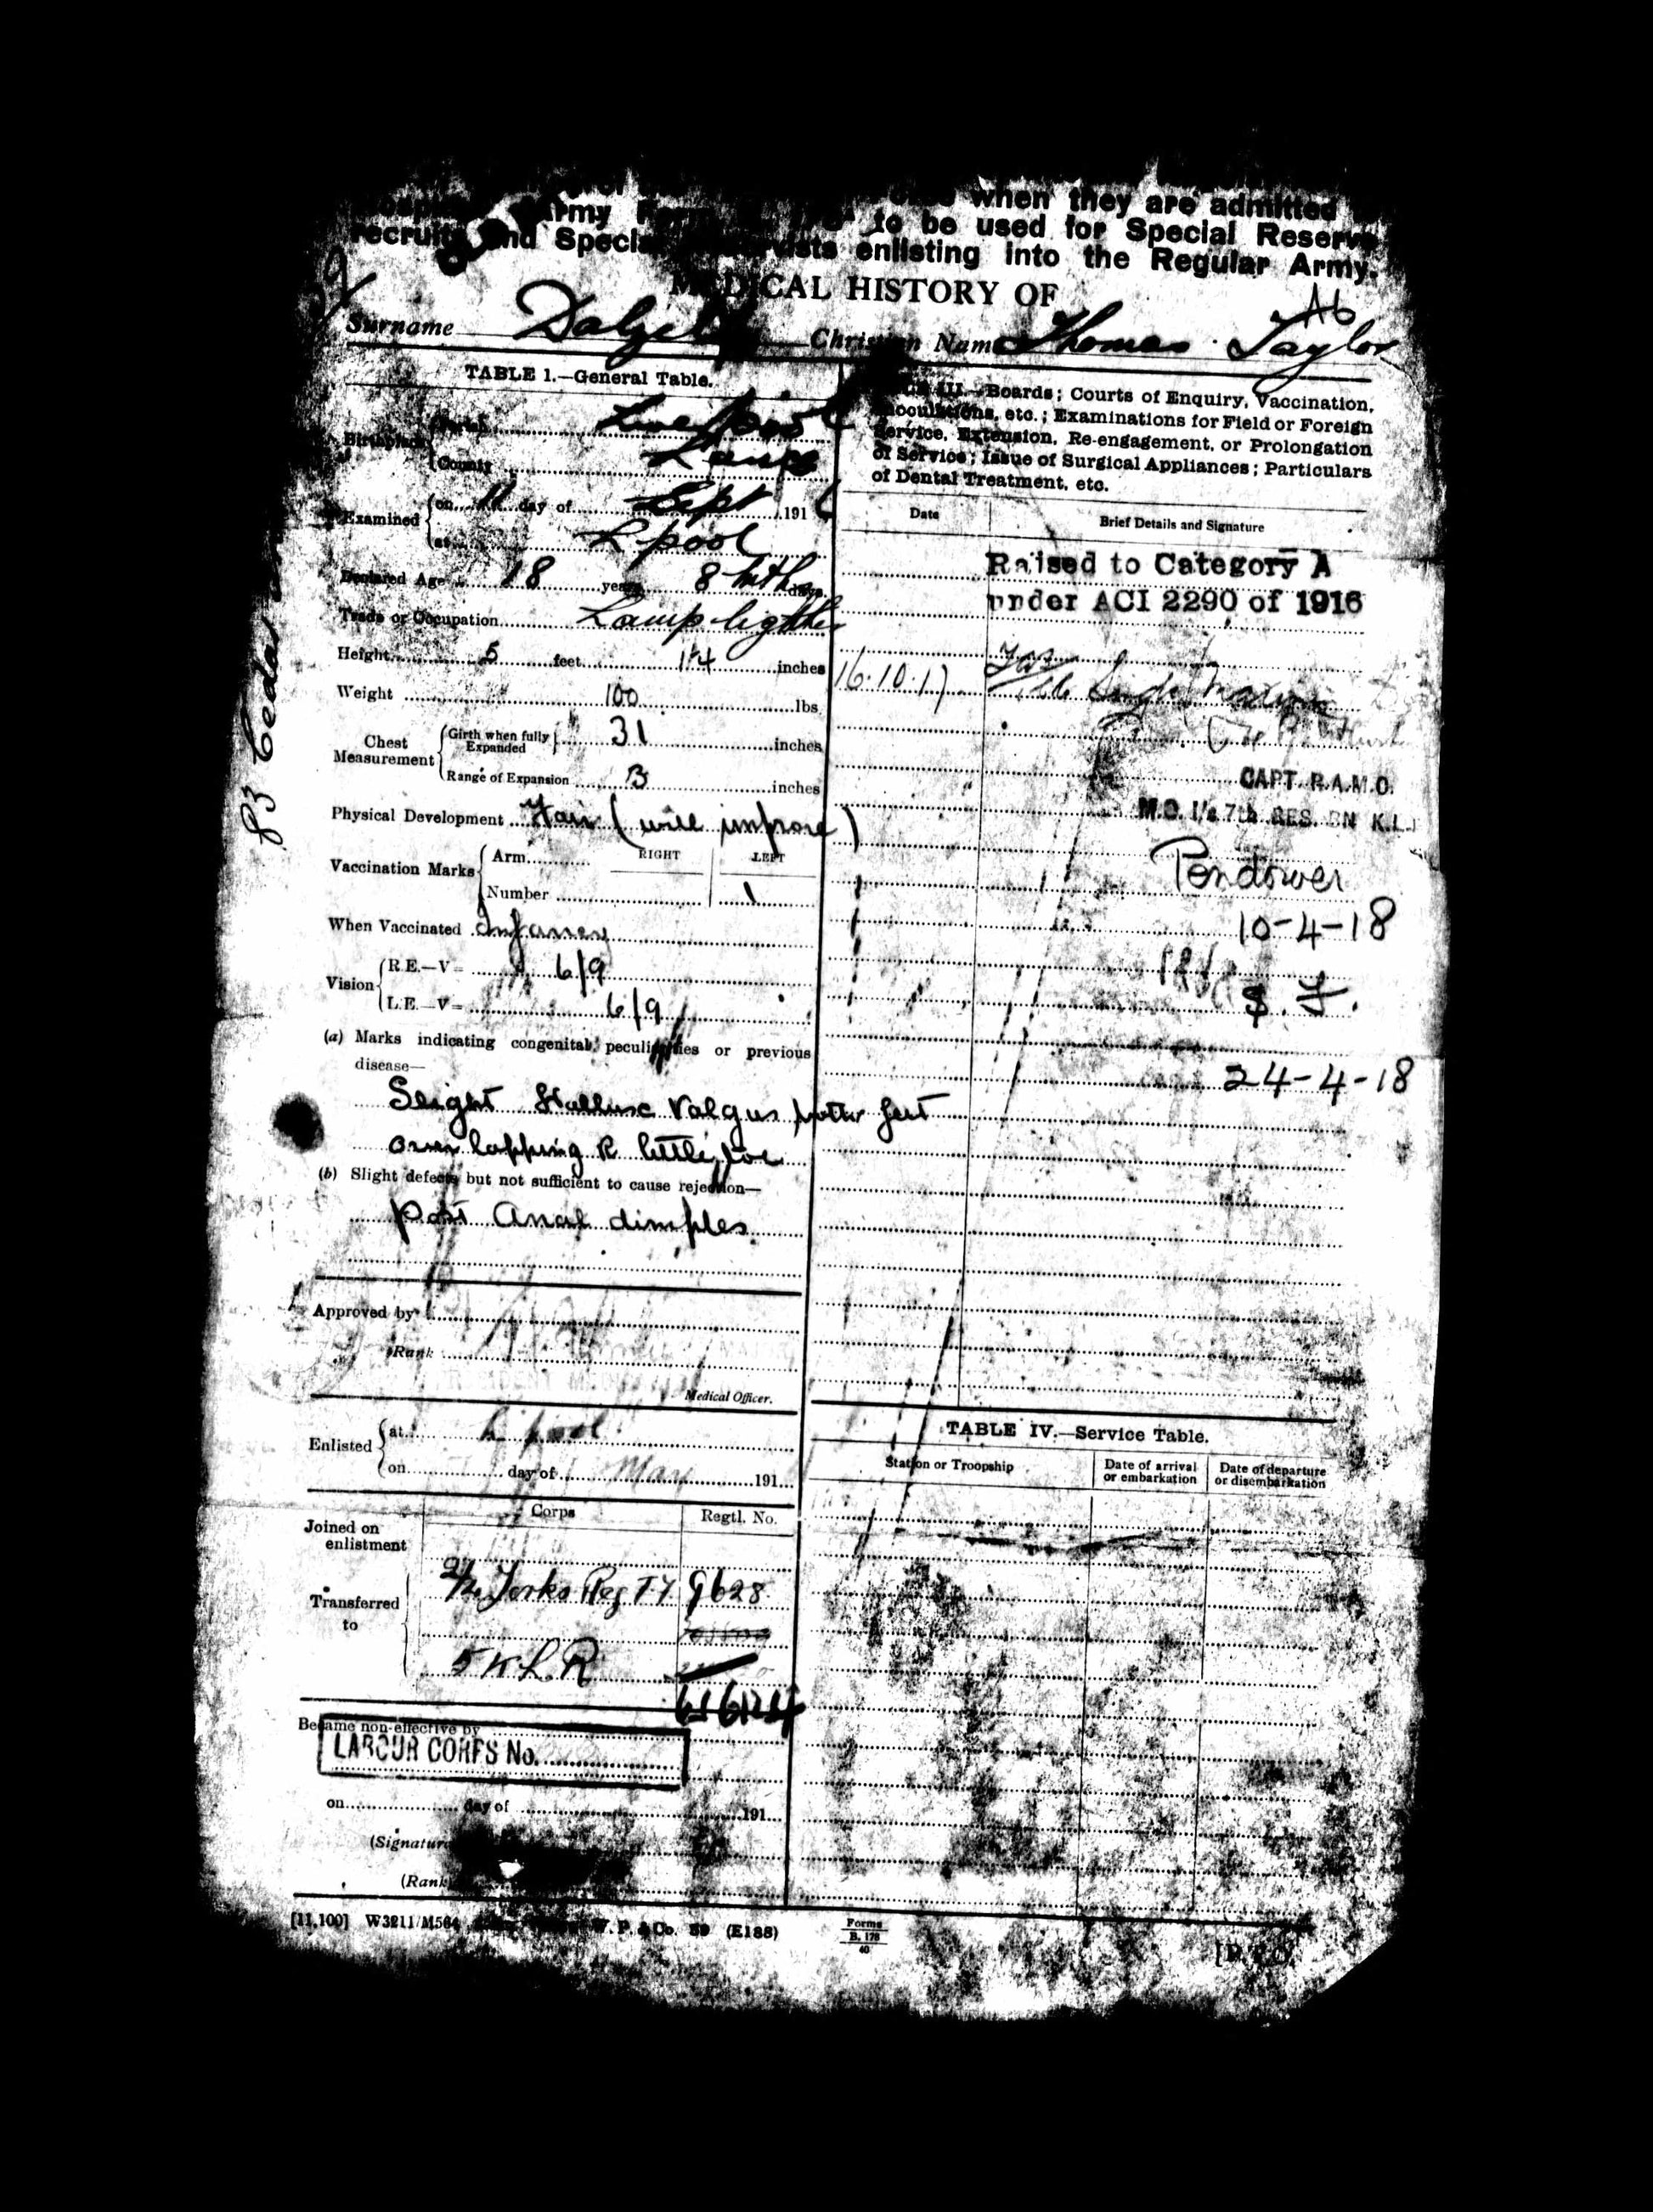 when they are admitted
Army to be used for Special Reserve
recruits and Special enlisting into the Regular Army.
MEDICAL HISTORY OF
A6
Surname Christian Name Thomas Taylor
TABLE I.—General Table.
Birthplace
Parish Liverpool
County Lancs
Examined
on 11 day of Sept 1916
at L'pool
Declared Age 18 years 8 mths days
Trade or Occupation Lamplighter
Height 5 feet 1¼ inches
Weight 100 lbs.
Chest Measurement
Girth when fully Expanded 31 inches
Range of Expansion 3 inches
Physical Development Fair (will improve)
Vaccination Marks
Arm RIGHT LEFT
Number 1
When Vaccinated Infancy
Vision
R.E.—V= 6/9
L.E.—V= 6/9
(a) Marks indicating congenital peculiarities or previous
disease—
Slight Hallux Valgus both feet
overlapping R little toe
(b) Slight defects but not sufficient to cause rejection—
Post Anal dimples
Approved by
Rank
Medical Officer.
Enlisted
at L'pool
on day of May 191
Corps Regtl. No.
Joined on
enlistment
Transferred
to
Yorks Reg TF 9628
5 K L R
Became non-effective by
LABOUR CORPS No.
on day of 191
(Signature
(Rank
[11,100] W3211/M564 W. P. & Co. (E188)
Forms
B. 178
40
83 Cedar
TABLE III.—Boards; Courts of Enquiry, Vaccination,
Inoculations, etc.; Examinations for Field or Foreign
Service, Extension, Re-engagement, or Prolongation
of Service; Issue of Surgical Appliances; Particulars
of Dental Treatment, etc.
Date Brief Details and Signature
Raised to Category A
under ACI 2290 of 1916
16.10.17
CAPT. R.A.M.C.
M.O. I/c 7th RES. BN K.L.
Pendower
10-4-18
24-4-18
TABLE IV.—Service Table.
Station or Troopship
Date of arrival
or embarkation
Date of departure
or disembarkation